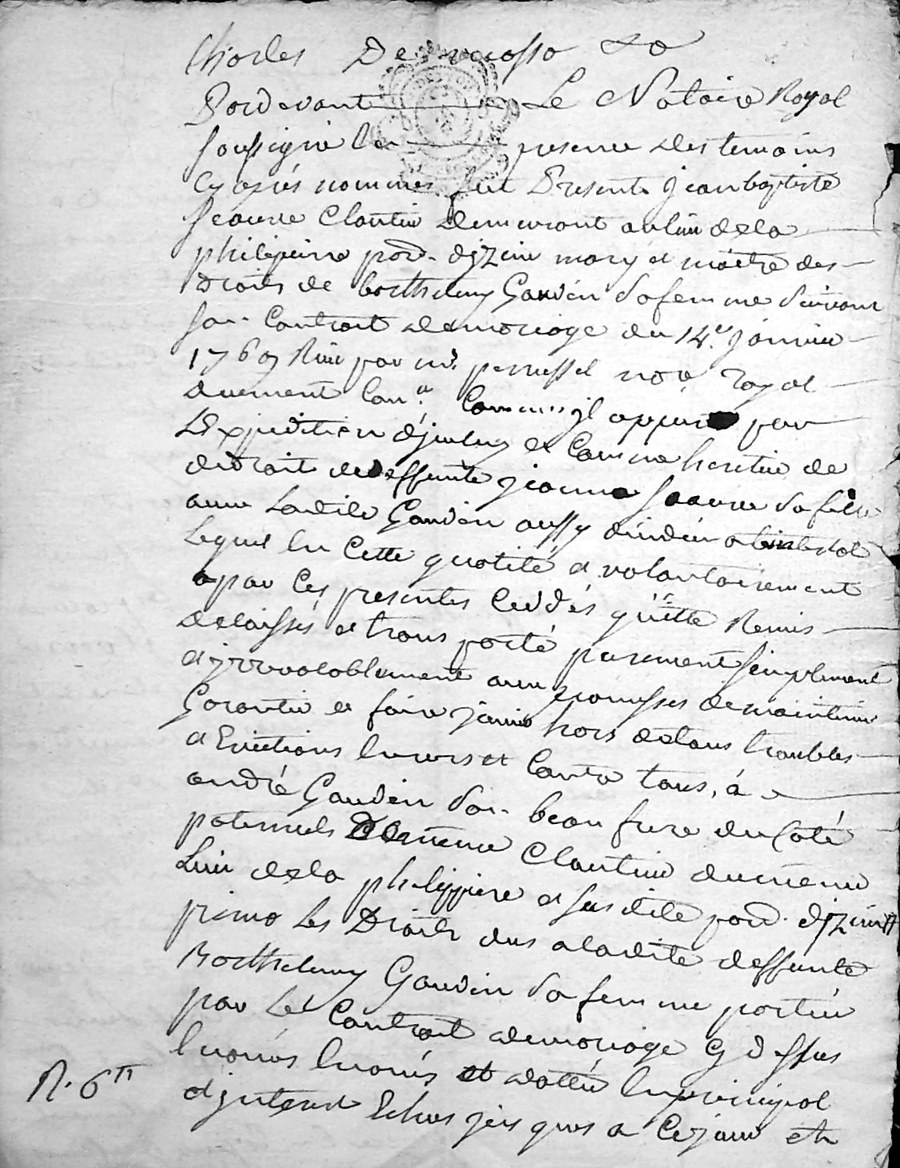 Charles De
Pardevant Le Notaire Royal
soussigné En presence des temoins
cy après nommes fut Present jean baptiste
Seauve Cloutier demeurant au lieu de la
philipiere parr. d'jzieu mary et maitre des
Droits de barthelmy Gaudin sa femme suivant
son Contract de mariage du 14e janvier
176 Reçu par me. not.e royal
duement Con.é Comme jl appert par
L'Expedition d'jceluy et Comme heritier de
droit de deffunte jeanne Seauve sa fille
avec Ladite Gaudin aussy decedée abintestat
Lequel En Cette qualité a volontairement
par Ces presentes Ceddés quitté Remis
delaissés et trans porté purement simplement
et jrrevocablement avec promesses de maintenir
Garantir et faire jouir hors de tous troubles
et Evictions Envers et Contre tous, à
andré Gaudin son beau frere du Coté
paternels Cloutier du meme
Lieu de la philippiere et susdite parr. d'jzieu
primo Les Droits dus a ladite deffunte
Barthelmy Gaudin sa femme portés
par Le Contract de mariage cy dessus
Enoncés et dattés En principal
R. 6tt
d'jnterest Echus jus ques a Ce jour et